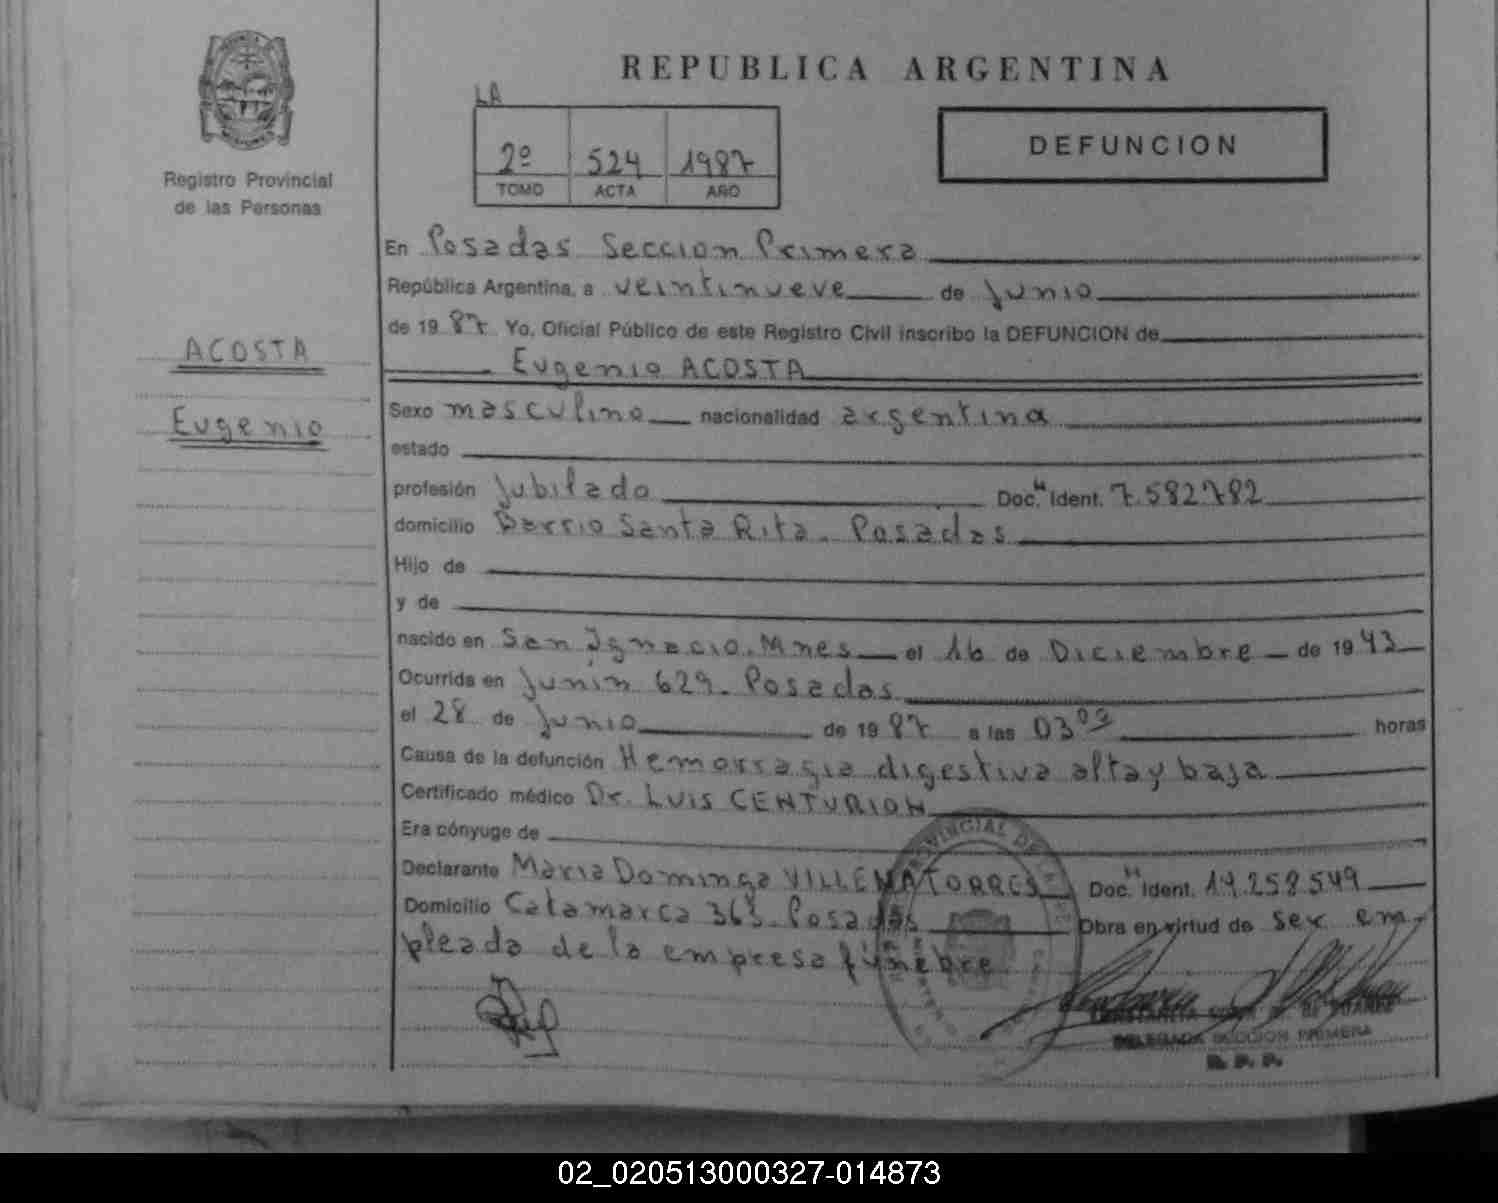 REPUBLICA ARGENTINA
LA
2º 524 1987
TOMO ACTA AÑO
DEFUNCION
Registro Provincial
de las Personas
ACOSTA
Eugenio
En Posadas Seccion Primera
República Argentina, a veintinueve de Junio
de 1987 Yo, Oficial Público de este Registro Civil inscribo la DEFUNCION de
Eugenio ACOSTA
Sexo masculino nacionalidad argentina
estado
profesión Jubilado Doc. Ident. 7.582.782
domicilio Barrio Santa Rita. Posadas
Hijo de
y de
nacido en San Ignacio. Mnes el 16 de Diciembre de 1943
Ocurrida en Junin 629. Posadas
el 28 de Junio de 1987 a las 03⁰⁰ horas
Causa de la defunción Hemorragia digestiva alta y baja
Certificado médico Dr. Luis CENTURION
Era cónyuge de
Declarante Maria Dominga VILLENA TORRES Doc. Ident. 14.258.549
Domicilio Catamarca 363. Posadas Obra en virtud de ser em-
pleada de la empresa fúnebre
DELEGADA SECCION PRIMERA
02_020513000327-014873